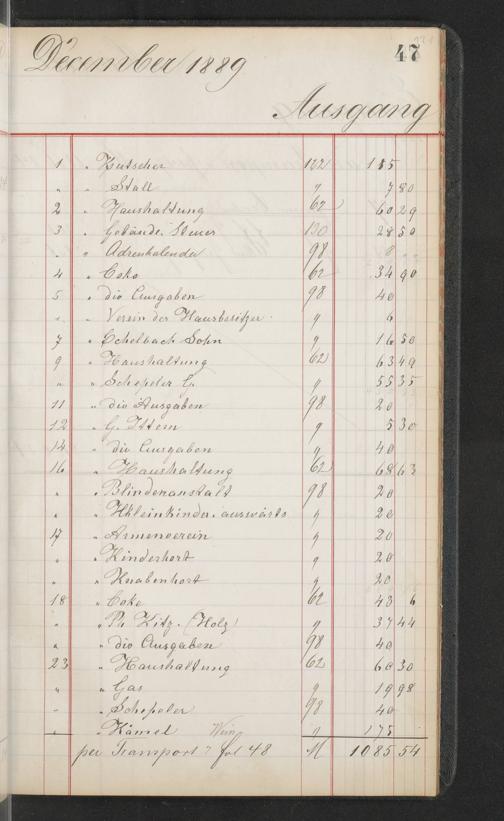 47
December 1889
Ausgang
1 " Kutscher 122 185
" " Stall " 7 80
2 " Haushaltung 62 60 29
3 " Gebäude Steuer 120 28 50
" " Adresskalender 98 8
4 " Coks 62 34 90
5 " div Ausgaben 98 40
" " Verein der Hausbesitzer " 6
7 " Echelbach Sohn " 16 50
9 " Haushaltung 62 63 49
" " Schepeler G. " 55 35
11 " div Ausgaben 98 20
12 " G. Ittem " 5 30
14 " div Ausgaben " 40
16 " Haushaltung 62 68 63
" " Blindenanstalt 98 20
" " Kleinkinder. auswärts " 20
17 " Armenverein " 20
" " Kinderhort " 20
" " Knabenhort " 20
18 " Coks 62 43 6
" " Ph Kitz. (Holz) " 37 44
" " div Ausgaben 98 40
23 " Haushaltung 62 60 30
" " Gas " 19 98
" " Schepeler 98 40
" " Hämel Wein " 175
per Transport fol 48 M 1085 54